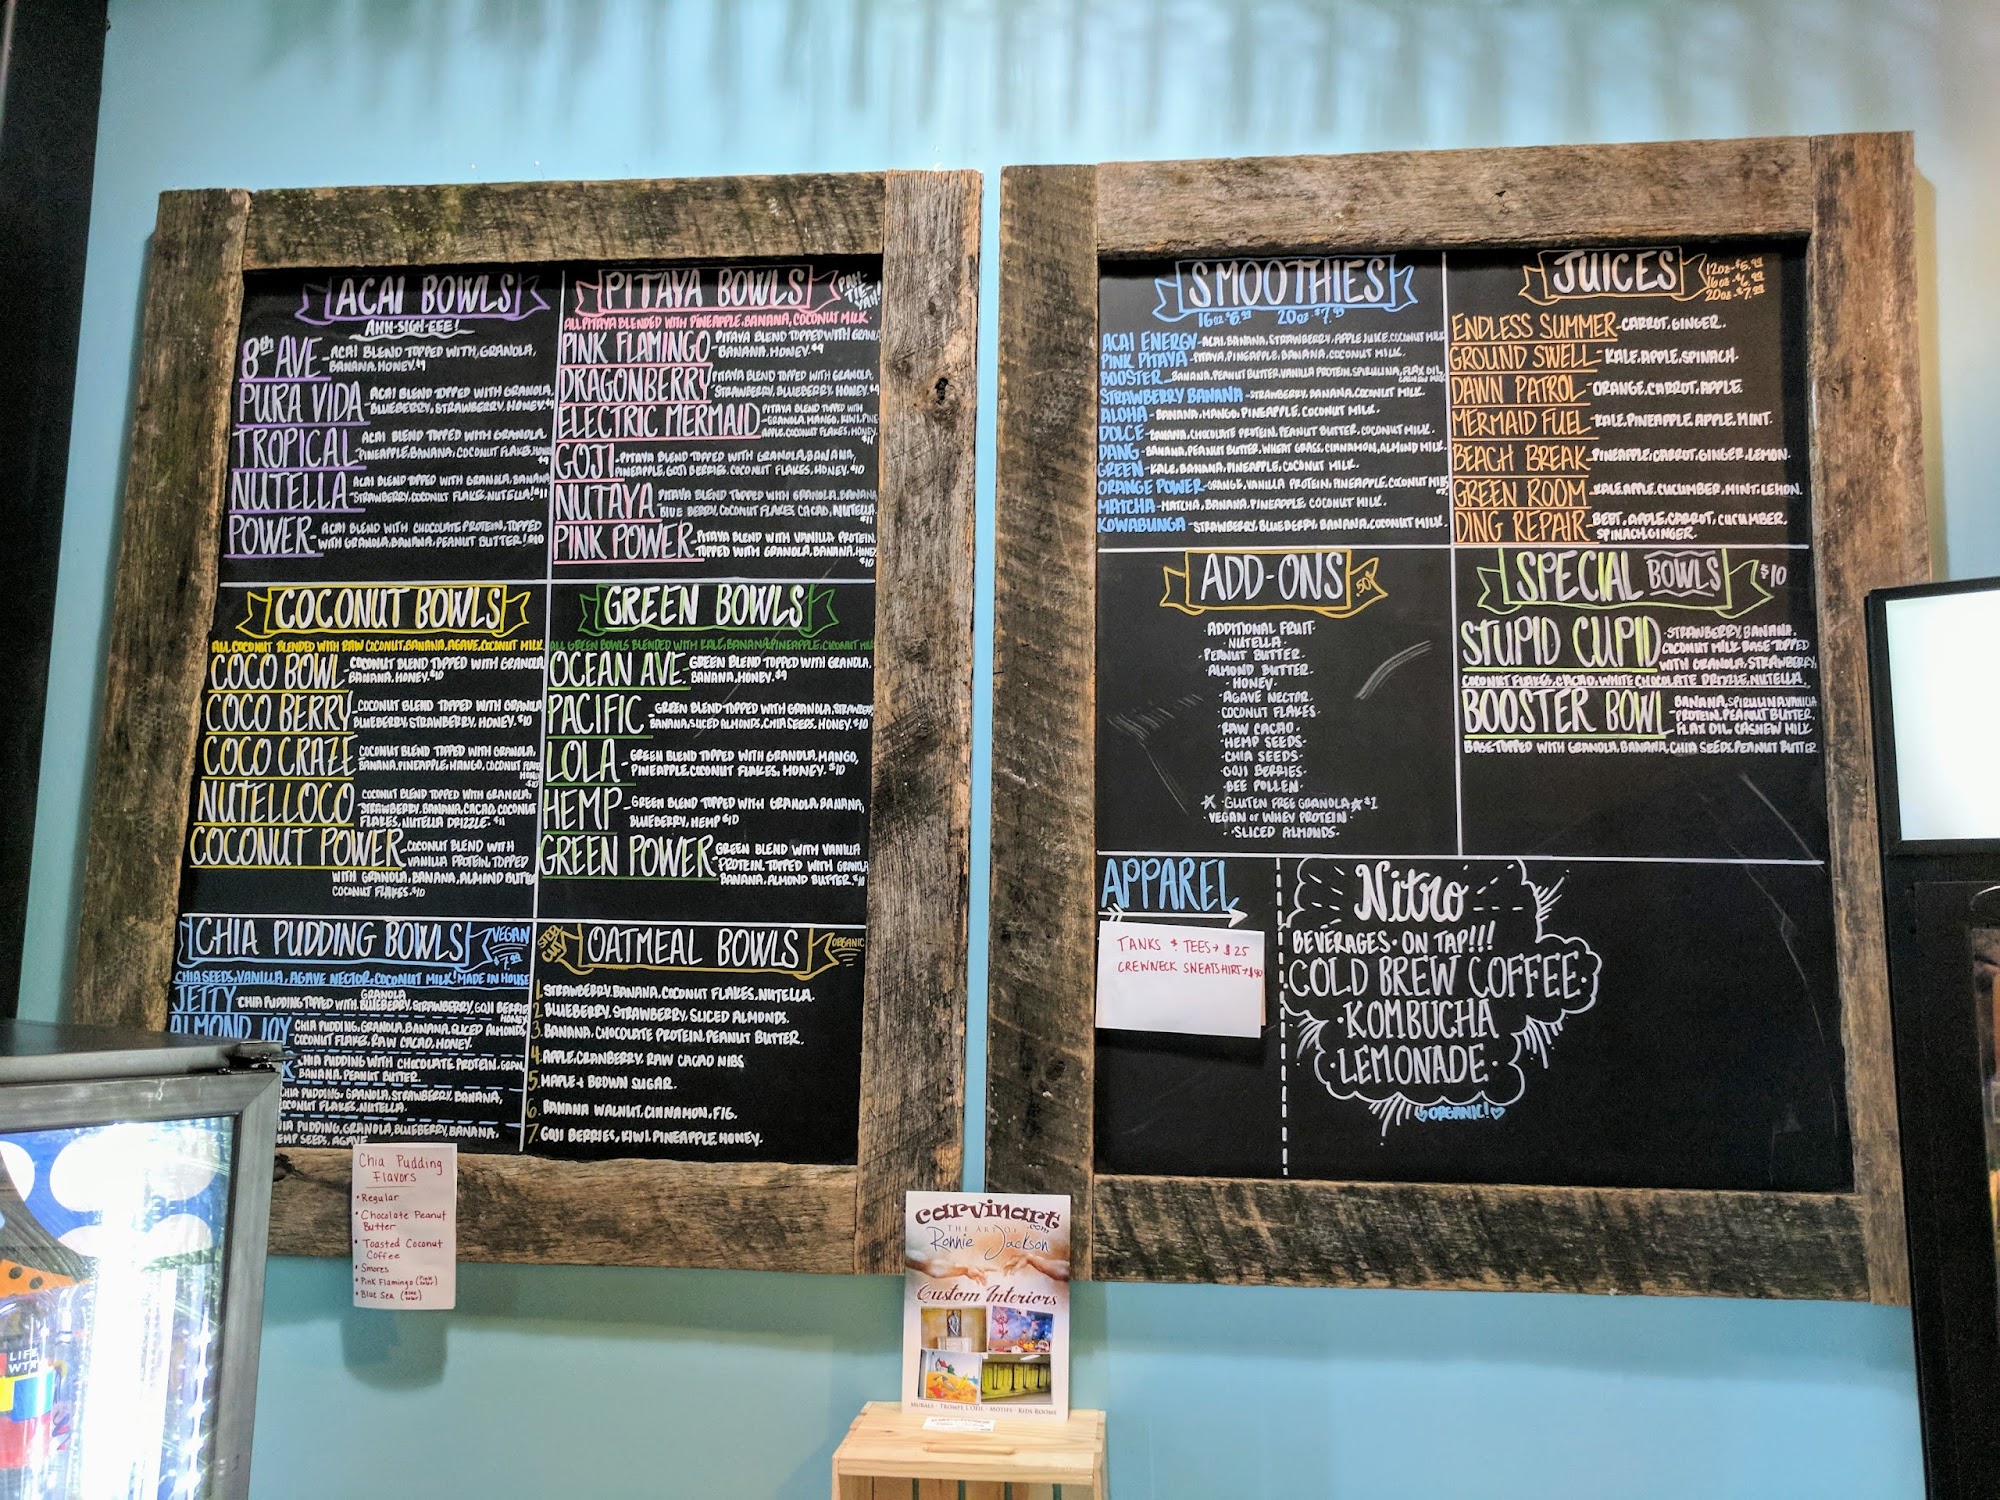 ACAI BOWLS
AHH-SIGH-EEE!
8th AVE - ACAI BLEND TOPPED WITH, GRANOLA,
BANANA, HONEY. $9
PURA VIDA - ACAI BLEND TOPPED WITH GRANOLA,
BLUEBERRY, STRAWBERRY, HONEY. $9
TROPICAL - ACAI BLEND TOPPED WITH GRANOLA,
PINEAPPLE, BANANA, COCONUT FLAKES, HONEY
$9
NUTELLA - ACAI BLEND TOPPED WITH GRANOLA, BANANA
STRAWBERRY, COCONUT FLAKE, NUTELLA! $11
POWER - ACAI BLEND WITH CHOCOLATE PROTEIN, TOPPED
WITH GRANOLA, BANANA, PEANUT BUTTER! $10
PITAYA BOWLS
PAH-
TIE-
YAH!
ALL PITAYA BLENDED WITH PINEAPPLE, BANANA, COCONUT MILK.
PINK FLAMINGO - PITAYA BLEND TOPPED WITH GRANOLA
BANANA, HONEY. $9
DRAGONBERRY - PITAYA BLEND TOPPED WITH GRANOLA,
STRAWBERRY, BLUEBERRY, HONEY. $9
ELECTRIC MERMAID - PITAYA BLEND TOPPED WITH
GRANOLA, MANGO, KIWI, PINE-
APPLE, COCONUT FLAKES, HONEY.
$11
GOJI - PITAYA BLEND TOPPED WITH GRANOLA, BANANA,
PINEAPPLE, GOJI BERRIES, COCONUT FLAKES, HONEY. $10
NUTAYA - PITAYA BLEND TOPPED WITH GRANOLA, BANANA
BLUE BERRY, COCONUT FLAKES, CACAO, NUTELLA.
$11
PINK POWER - PITAYA BLEND WITH VANILLA PROTEIN,
TOPPED WITH GRANOLA, BANANA, HONEY
$10
COCONUT BOWLS
ALL COCONUT BLENDED WITH RAW COCONUT, BANANA, AGAVE, COCONUT MILK.
COCO BOWL - COCONUT BLEND TOPPED WITH GRANOLA
BANANA, HONEY. $10
COCO BERRY - COCONUT BLEND TOPPED WITH GRANOLA
BLUEBERRY, STRAWBERRY, HONEY. $10
COCO CRAZE - COCONUT BLEND TOPPED WITH GRANOLA,
BANANA, PINEAPPLE, MANGO, COCONUT FLAKE
HONEY
NUTELLOCO - COCONUT BLEND TOPPED WITH GRANOLA,
STRAWBERRY, BANANA, CACAO, COCONUT
FLAKES, NUTELLA DRIZZLE. $11
COCONUT POWER - COCONUT BLEND WITH
VANILLA PROTEIN, TOPPED
WITH GRANOLA, BANANA, ALMOND BUTTER
COCONUT FLAKES. $10
GREEN BOWLS
ALL GREEN BOWLS BLENDED WITH KALE, BANANA, PINEAPPLE, COCONUT MILK
OCEAN AVE. - GREEN BLEND TOPPED WITH GRANOLA,
BANANA, HONEY. $9
PACIFIC - GREEN BLEND TOPPED WITH GRANOLA, STRAWBERRY
BANANA, SLICED ALMONDS, CHIA SEEDS, HONEY. $10
LOLA - GREEN BLEND TOPPED WITH GRANOLA, MANGO,
PINEAPPLE, COCONUT FLAKES, HONEY. $10
HEMP - GREEN BLEND TOPPED WITH GRANOLA, BANANA,
BLUEBERRY, HEMP $10
GREEN POWER - GREEN BLEND WITH VANILLA
PROTEIN, TOPPED WITH GRANOLA
BANANA, ALMOND BUTTER. $10
CHIA PUDDING BOWLS
VEGAN
$7.99
CHIA SEEDS, VANILLA, AGAVE NECTOR, COCONUT MILK! MADE IN HOUSE
JETTY - CHIA PUDDING TOPPED WITH GRANOLA, BLUEBERRY, STRAWBERRY, GOJI BERRIES
HONEY
ALMOND JOY - CHIA PUDDING, GRANOLA, BANANA, SLICED ALMONDS,
COCONUT FLAKES, RAW CACAO, HONEY.
CHIA PUDDING WITH CHOCOLATE PROTEIN, GRAN
BANANA, PEANUT BUTTER.
CHIA PUDDING, GRANOLA, STRAWBERRY, BANANA,
COCONUT FLAKES, NUTELLA.
PUDDING, GRANOLA, BLUEBERRY, BANANA,
HEMP SEEDS, AGAVE
STEEL CUT
OATMEAL BOWLS
ORGANIC
1. STRAWBERRY, BANANA, COCONUT FLAKES, NUTELLA.
2. BLUEBERRY, STRAWBERRY, SLICED ALMONDS.
3. BANANA, CHOCOLATE PROTEIN, PEANUT BUTTER.
4. APPLE, CRANBERRY, RAW CACAO NIBS
5. MAPLE + BROWN SUGAR.
6. BANANA WALNUT, CINNAMON, FIG.
7. GOJI BERRIES, KIWI, PINEAPPLE, HONEY.
Chia Pudding
Flavors
• Regular
• Chocolate Peanut
Butter
• Toasted Coconut
Coffee
• Smores
• Pink Flamingo (Pink color)
• Blue Sea (Blue color)
SMOOTHIES
16oz $6.99 20oz $7.99
ACAI ENERGY - ACAI, BANANA, STRAWBERRY, APPLE JUICE, COCONUT MILK
PINK PITAYA - PITAYA, PINEAPPLE, BANANA, COCONUT MILK.
BOOSTER - BANANA, PEANUT BUTTER, VANILLA PROTEIN, SPIRULINA, FLAX OIL,
CASHEW MILK
STRAWBERRY BANANA - STRAWBERRY, BANANA, COCONUT MILK.
ALOHA - BANANA, MANGO, PINEAPPLE, COCONUT MILK.
DOLCE - BANANA, CHOCOLATE PROTEIN, PEANUT BUTTER, COCONUT MILK.
DANG - BANANA, PEANUT BUTTER, WHEAT GRASS, CINNAMON, ALMOND MILK.
GREEN - KALE, BANANA, PINEAPPLE, COCONUT MILK.
ORANGE POWER - ORANGE, VANILLA PROTEIN, PINEAPPLE, COCONUT MILK
MATCHA - MATCHA, BANANA, PINEAPPLE, COCONUT MILK.
KOWABUNGA - STRAWBERRY, BLUEBERRY, BANANA, COCONUT MILK.
JUICES
12oz - $5.99
16oz - $6.99
20oz - $7.99
ENDLESS SUMMER - CARROT, GINGER.
GROUND SWELL - KALE, APPLE, SPINACH.
DAWN PATROL - ORANGE, CARROT, APPLE.
MERMAID FUEL - KALE, PINEAPPLE, APPLE, MINT.
BEACH BREAK - PINEAPPLE, CARROT, GINGER, LEMON.
GREEN ROOM - KALE, APPLE, CUCUMBER, MINT, LEMON.
DING REPAIR - BEET, APPLE, CARROT, CUCUMBER,
SPINACH, GINGER.
ADD-ONS
.50¢
· ADDITIONAL FRUIT·
· NUTELLA·
· PEANUT BUTTER·
· ALMOND BUTTER·
· HONEY·
· AGAVE NECTOR·
· COCONUT FLAKES·
· RAW CACAO·
· HEMP SEEDS·
· CHIA SEEDS·
· GOJI BERRIES·
· BEE POLLEN·
☆ · GLUTEN FREE GRANOLA ☆ $1
· VEGAN or WHEY PROTEIN·
· SLICED ALMONDS·
SPECIAL BOWLS $10
STUPID CUPID - STRAWBERRY, BANANA,
COCONUT MILK BASE TOPPED
WITH GRANOLA, STRAWBERRY,
COCONUT FLAKES, CACAO, WHITE CHOCOLATE DRIZZLE, NUTELLA.
BOOSTER BOWL - BANANA, SPIRULINA, VANILLA
PROTEIN, PEANUT BUTTER,
FLAX OIL, CASHEW MILK
BASE TOPPED WITH GRANOLA, BANANA, CHIA SEEDS, PEANUT BUTTER
APPAREL
TANKS + TEES → $25
CREWNECK SNEATSHIRT → $40
Nitro
BEVERAGES · ON TAP!!!
COLD BREW COFFEE·
·KOMBUCHA
·LEMONADE·
ORGANIC!
carvinart
.com
THE ART OF
Ronnie Jackson
Custom Interiors
MURALS · TROMPE L'OEIL · MOTIFS · KIDS ROOMS
LIFE
WTR